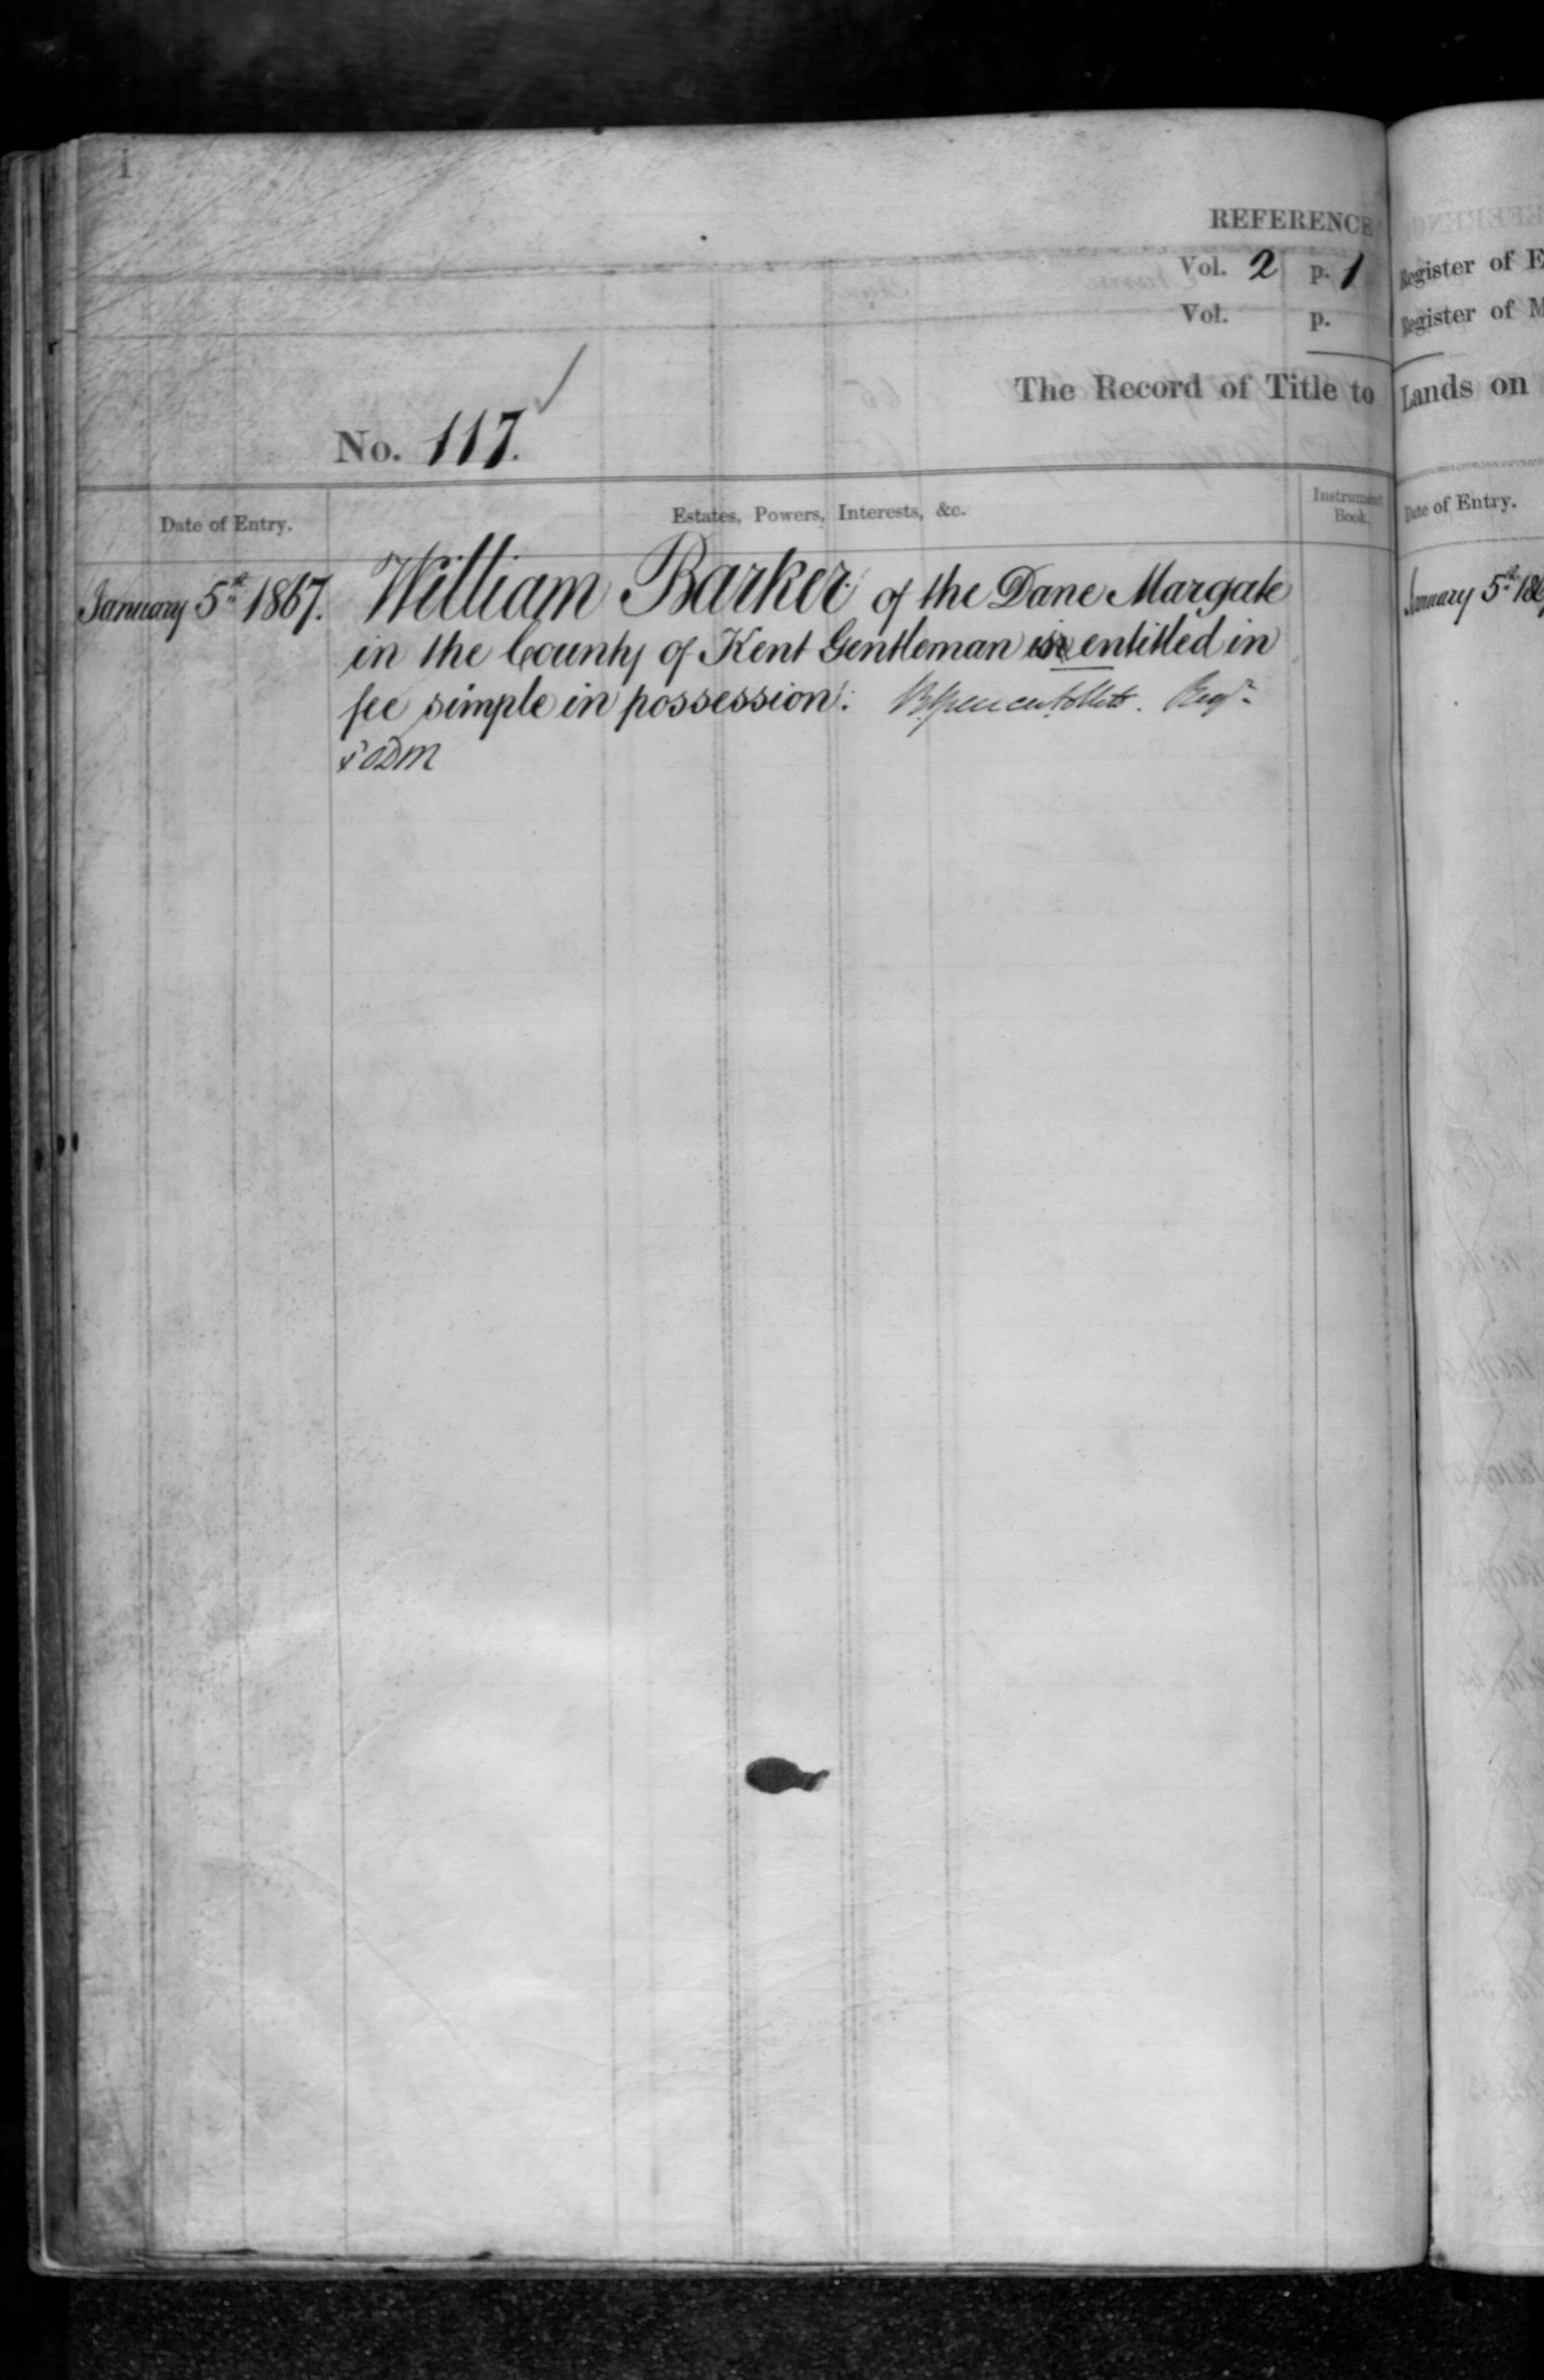 1
REFERENCE
Vol. 2 p. 1
Vol. p.
The Record of Title to
No. 117.
Date of Entry.
Estates, Powers, Interests, &c.
Instrument Book.
January 5th 1867.
William Barker of the Dane Margate
in the County of Kent Gentleman is entitled in
fee simple in possession. Regr
Register of E
Register of M
Lands on
Date of Entry.
January 5th 186